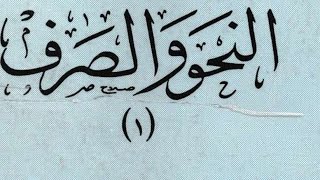 النحو والصرف
(١)